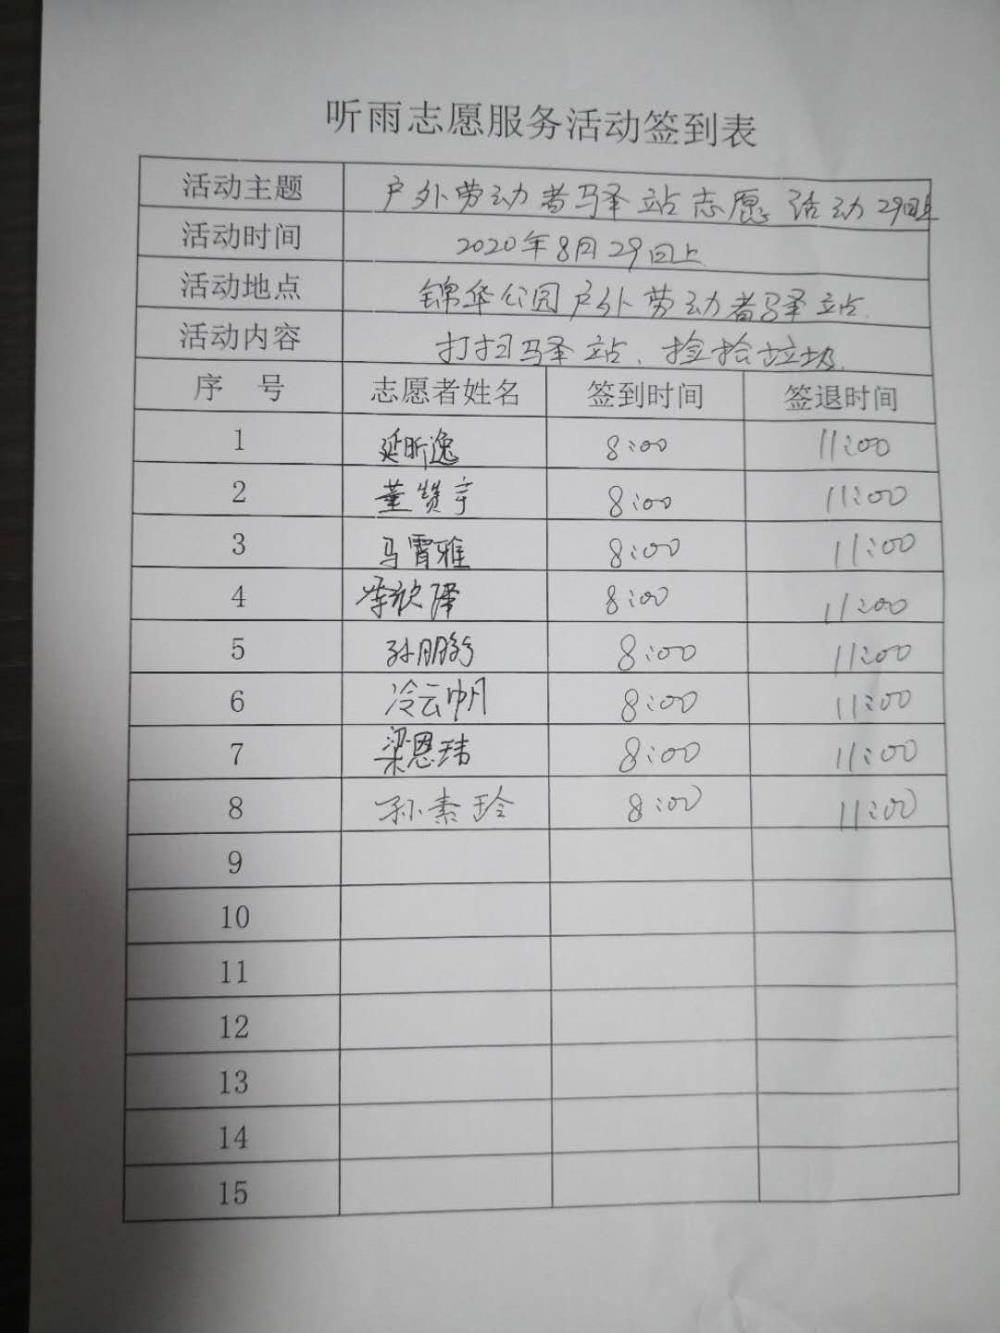 听雨志愿服务活动签到表
活动主题 户外劳动者驿站志愿活动29日上
活动时间 2020年8月29日上
活动地点 锦华公园户外劳动者驿站.
活动内容 打扫驿站、捡拾垃圾.
序 号 志愿者姓名 签到时间 签退时间
1 延昕逸 8:00 11:00
2 董赞宇 8:00 11:00
3 马霄雅 8:00 11:00
4 8:00 11:00
5 孙朋 8:00 11:00
6 冷云帆 8:00 11:00
7 梁恩玮 8:00 11:00
8 孙素玲 8:00 11:00
9
10
11
12
13
14
15